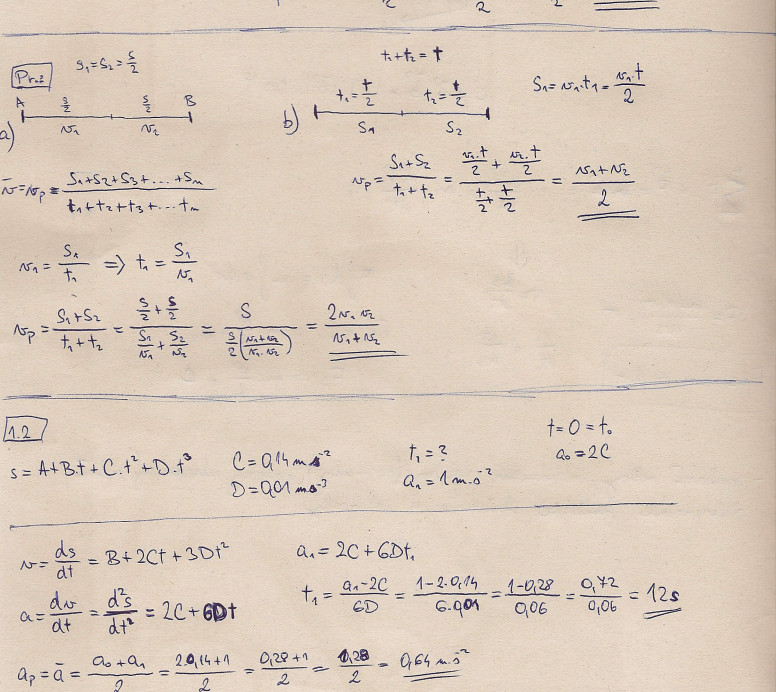 2 2 2
Pr.2 s₁=s₂=s/2
t₁+t₂=t
A s/2 s/2 B
t₁=t/2 t₂=t/2
s₁=v₁.t₁=v₁.t/2
a) v₁ v₂
b) s₁ s₂
v̄=vₚ=(s₁+s₂+s₃+....+sₙ)/(t₁+t₂+t₃+....tₙ)
vₚ=(s₁+s₂)/(t₁+t₂)=(v₁.t/2+v₂.t/2)/(t/2+t/2)=(v₁+v₂)/2
v₁=s₁/t₁ => t₁=s₁/v₁
vₚ=(s₁+s₂)/(t₁+t₂)=(s/2+s/2)/(s₁/v₁+s₂/v₂)=s/(s/2((v₁+v₂)/(v₁.v₂)))=2v₁v₂/(v₁+v₂)
1.2
s=A+B.t+C.t²+D.t³
C=0,14 m s⁻²
D=0,01 m s⁻³
t₁=?
a₁=1 m.s⁻²
t=0=t₀
a₀=2C
v=ds/dt=B+2Ct+3Dt²
a₁=2C+6Dt₁
a=dv/dt=d²s/dt²=2C+6Dt
t₁=(a₁-2C)/6D=(1-2.0,14)/(6.0,01)=(1-0,28)/0,06=0,72/0,06=12s
aₚ=ā=(a₀+a₁)/2=(2.0,14+1)/2=(0,28+1)/2=1,28/2=0,64 m.s⁻²